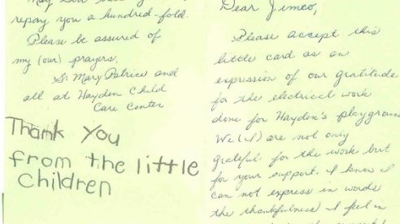 Dear Jimco,
Please accept this
little card as an
expression of our gratitude
for the electrical work
done for Hayden's playground
We (I) are not only
grateful for the work but
for your support. I know I
can not express in words
the thankfulness I feel in
repay you a hundred-fold.
Please be assured of
my (our) prayers,
Sr. Mary Patrice and
all at Hayden Child
Care Center
Thank You
from the little
Children